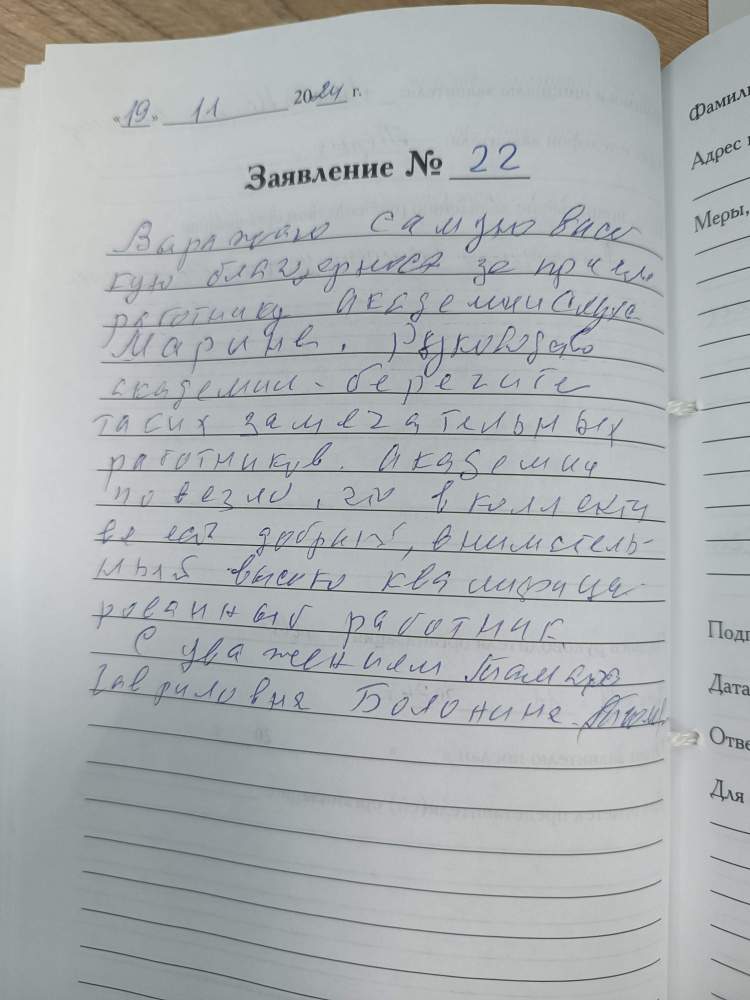 «19» 11 2024 г.
Заявление № 22
Выражаю самую высо
кую благодарность за прием
работнику Академии Слуха
Марине. Руководство
академии - берегите
таких замечательных
работников. Академии
повезло, что в коллекти
ве есть добрый, вниматель-
ный высоко квалифици
рованный работник
С уважением Тамара
Гавриловна Болонина.
Фамили
Адрес
Меры,
Подп
Дата
Отве
Для